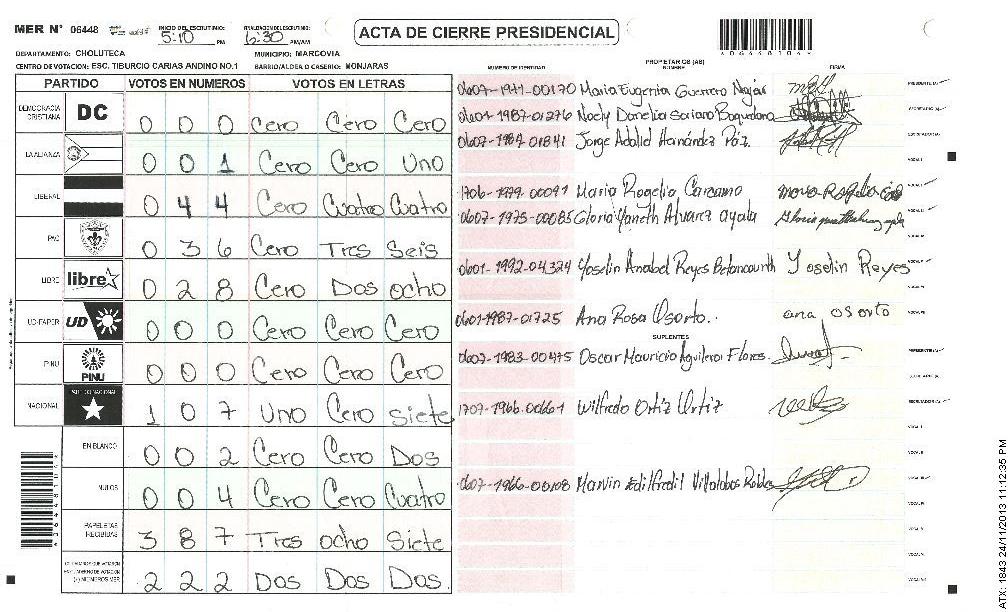 MER N° 06448 INICIO DEL ESCRUTINIO: 5:10 PM FINALIZACION ESCRUTINIO: 6:30 PM/AM ACTA DE CIERRE PRESIDENCIAL
DEPARTAMENTO: CHOLUTECA MUNICIPIO: MARCOVIA
CENTRO DE VOTACION: ESC. TIBURCIO CARIAS ANDINO NO.1 BARRIO/ALDEA O CASERIO: MONJARAS
PARTIDO VOTOS EN NUMEROS VOTOS EN LETRAS
DEMOCRACIA CRISTIANA DC 0 0 0 Cero Cero Cero
LA ALIANZA 0 0 1 Cero Cero Uno
LIBERAL 0 4 4 Cero Cuatro Cuatro
PAC 0 3 6 Cero Tres Seis
LIBRE libre 0 2 8 Cero Dos ocho
UD-FAPER UD 0 0 0 Cero Cero Cero
PINU PINU 0 0 0 Cero Cero Cero
NACIONAL PARTIDO NACIONAL 1 0 7 Uno Cero Siete
EN BLANCO 0 0 2 Cero Cero Dos
NULOS 0 0 4 Cero Cero Cuatro
PAPELETAS RECIBIDAS 3 8 7 Tres ocho Siete
2 2 2 Dos Dos Dos
NUMERO DE IDENTIDAD PROPIETARIOS (AS) NOMBRE FIRMA
0607-1971-00170 Maria Eugenia Guerrero Najar
0601-1987-01276 Noely Danelia Soriano Boquedano
0607-1984-01841 Jorge Adalid Hernández Páz.
1706-1979-00091 Maria Rogelia Carcamo
0607-1975-00085 Gloria Yaneth Alvarez ayala
0601-1992-04324 Yoselin Anabel Reyes Betancourth Yoselin Reyes
0601-1987-01725 Ana Rosa Osorto. ana osorto
SUPLENTES
0607-1983-00475 Oscar Mauricio Aguilera Flores.
1707-1966-00661 Wilfredo Ortiz Ortiz
0607-1966-00108 Marvin Villalobos
ATX: 1843 24/11/2013 11:12:35 PM